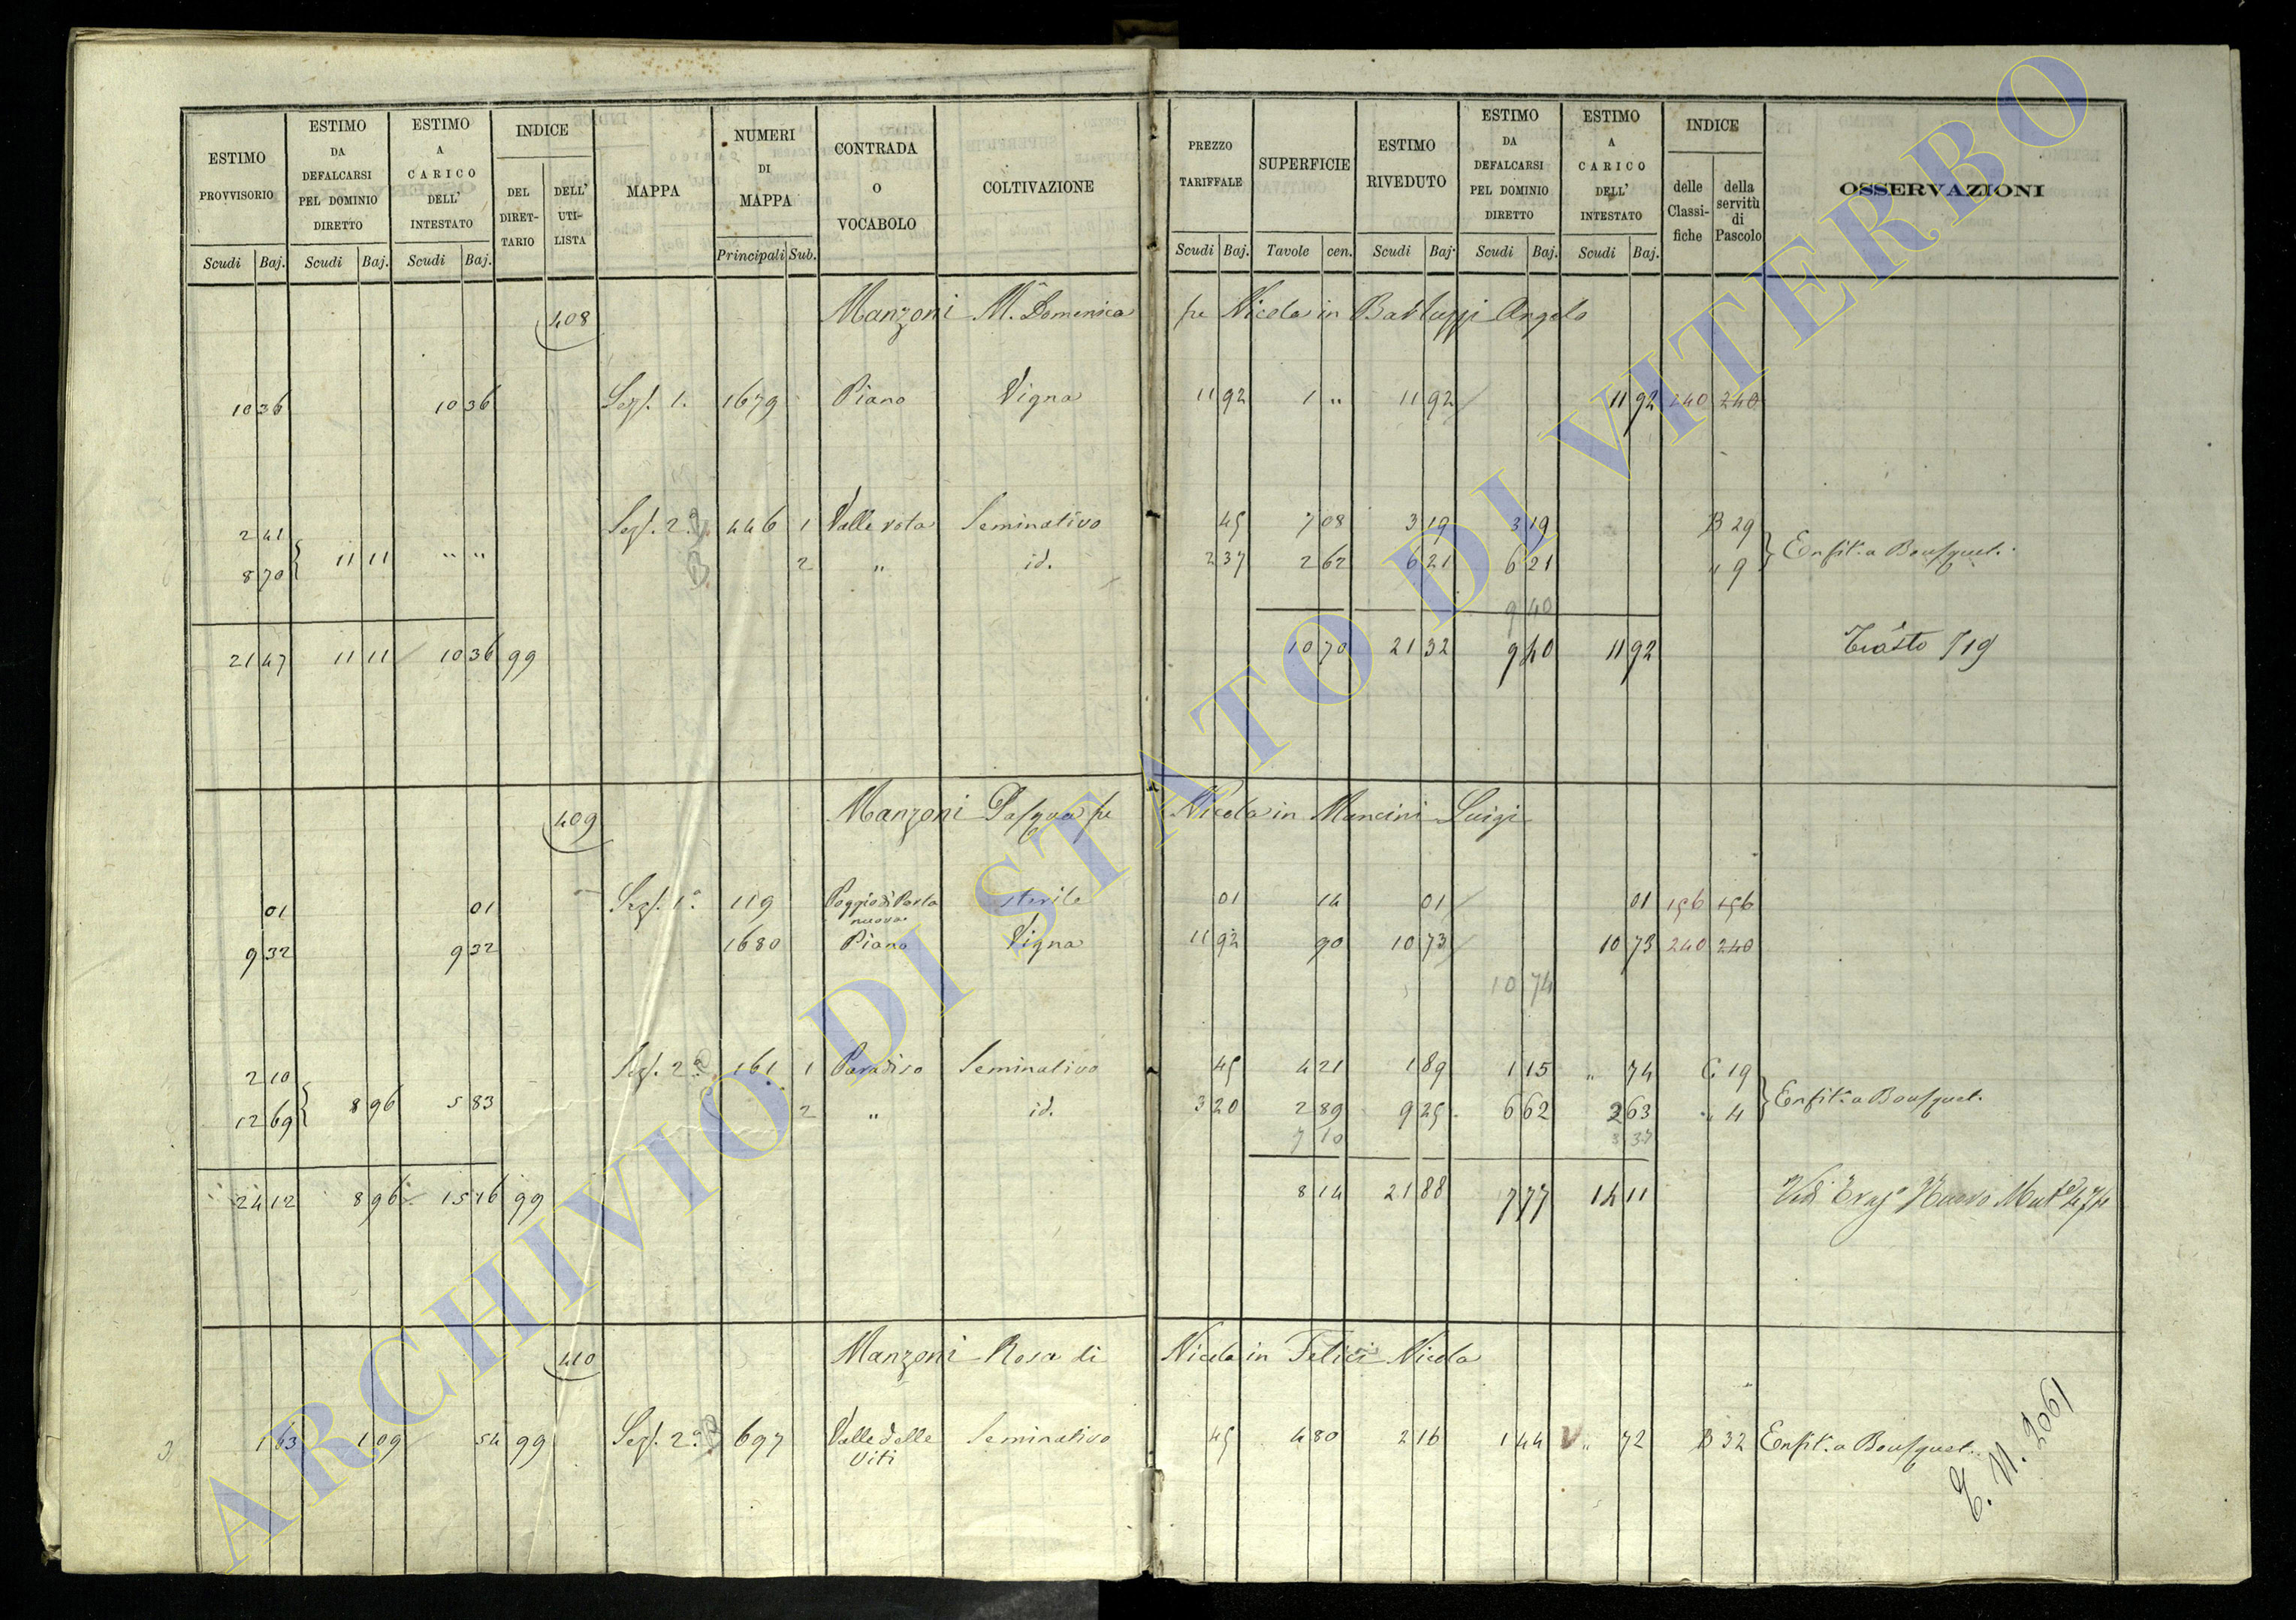 ESTIMO PROVVISORIO | ESTIMO DA DEFALCARSI PEL DOMINIO DIRETTO | ESTIMO A CARICO DELL' INTESTATO | INDICE | MAPPA | NUMERI DI MAPPA | CONTRADA O VOCABOLO | COLTIVAZIONE | PREZZO TARIFFALE | SUPERFICIE | ESTIMO RIVEDUTO | ESTIMO DA DEFALCARSI PEL DOMINIO DIRETTO | ESTIMO A CARICO DELL' INTESTATO | INDICE | OSSERVAZIONI
DEL DIRET-TARIO | DELL' UTI-LISTA | delle Classi-fiche | della servitù di Pascolo
Scudi Baj. | Scudi Baj. | Scudi Baj. | Principali Sub. | Scudi Baj. | Tavole cen. | Scudi Baj. | Scudi Baj. | Scudi Baj.
408 Manzoni M.a Domenica pe Nicola in Battuzzi Angelo
10 36 10 36 Sez. 1. 1679 Piano Vigna 11 92 1 " 11 92 11 92 240 240
2 41 Sez. 2.a 446 1 Valle rota Seminativo 45 7 08 3 19 3 19 B 29
11 11 " "
8 70 2 " id. 2 37 2 62 6 21 6 21 " 9
Enfit. a Bousquet.
9 40
21 47 11 11 10 36 99 10 70 21 32 9 40 11 92
409 Manzoni Pasqua pe Nicola in Mancini Luigi
01 01 Sez. 1.a 119 Poggio di Porta nuova sterile 01 14 01 01 156 156
9 32 9 32 1680 Piano Vigna 11 92 90 10 73 10 73 240 240
10 74
2 10 Sez. 2.a 161 1 Paradiso Seminativo 45 4 21 1 89 1 15 " 74 C 19
8 96 5 83
12 69 2 " id. 3 20 2 89 9 25 6 62 2 63 " 4
Enfit. a Bousquet.
7 10 3 37
24 12 8 96 15 16 99 8 14 21 88 7 77 14 11
410 Manzoni Rosa di Nicola in Felici Nicola
1 63 1 09 54 99 Sez. 2.a 697 Valle delle Viti Seminativo 45 4 80 2 16 1 44 " 72 B 32 Enfit. a Bousquet.
2061
ARCHIVIO DI STATO DI VITERBO